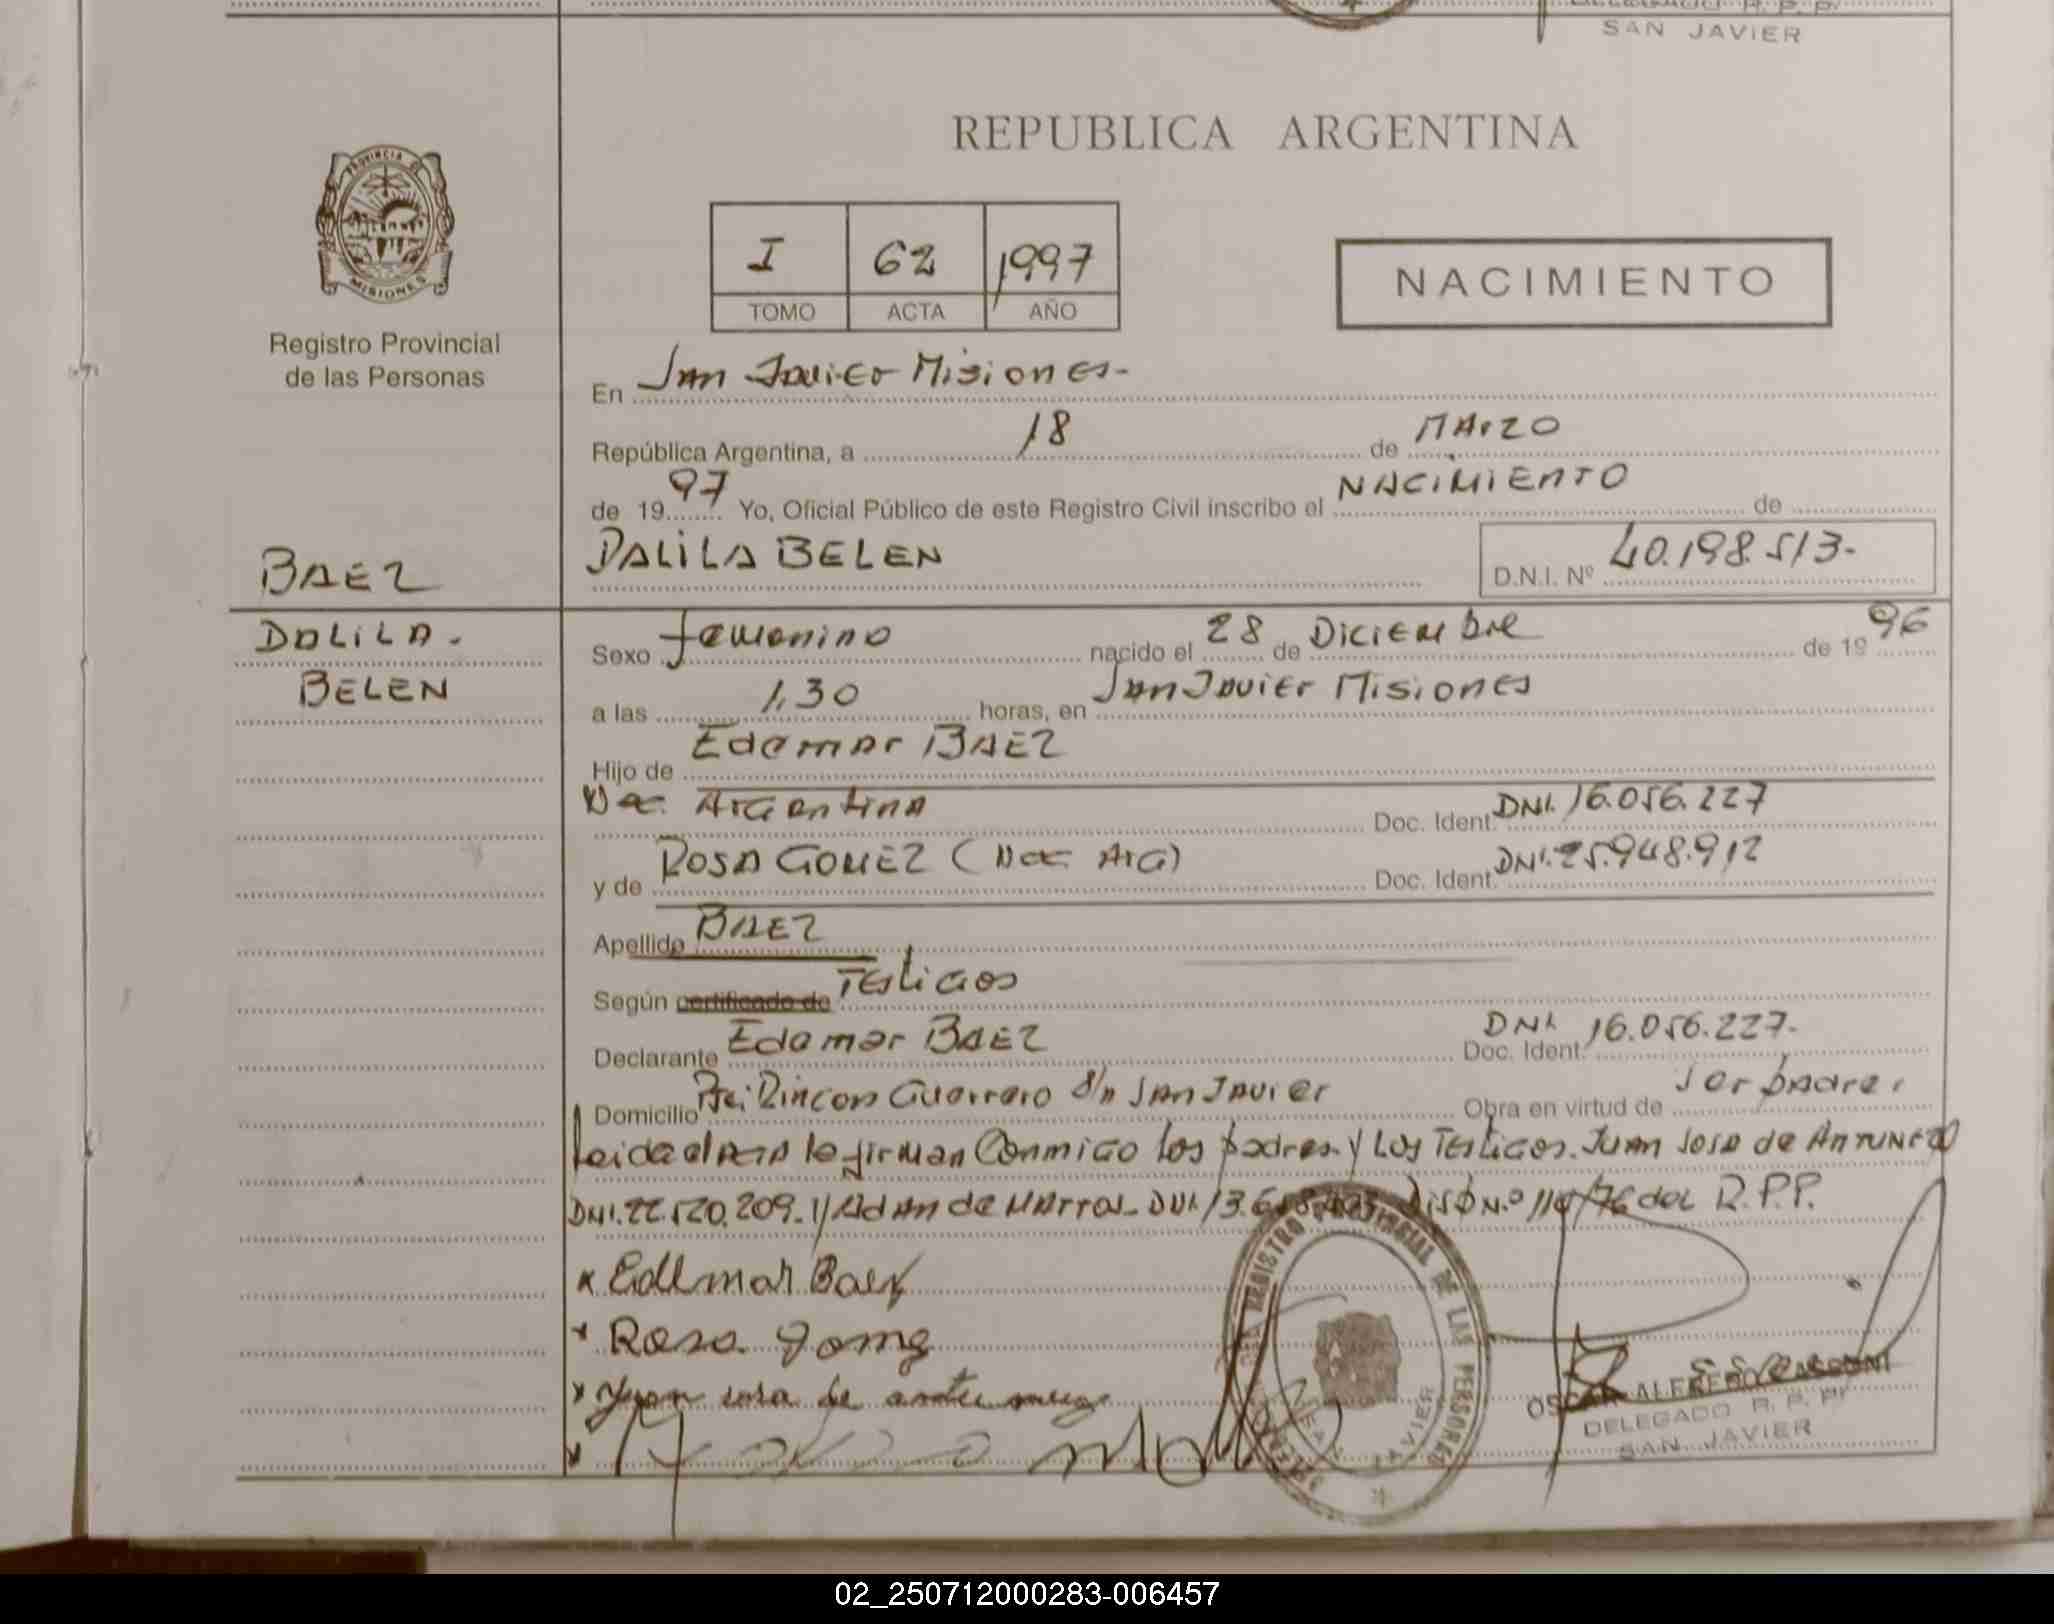 SAN JAVIER
REPUBLICA ARGENTINA
PROVINCIA DE
MISIONES
Registro Provincial
de las Personas
I 62 1997
TOMO ACTA AÑO
NACIMIENTO
En San Javier Misiones-
República Argentina, a 18 de MARZO
de 1997 Yo, Oficial Público de este Registro Civil inscribo el NACIMIENTO de
BAEZ
DALILA BELEN
D.N.I. Nº 40.198.513-
DALILA.
BELEN
Sexo femenino nacido el 28 de Diciembre de 1996
a las 1,30 horas, en San Javier Misiones
Hijo de Edemar BAEZ
Nac. Argentina Doc. Ident. DNI. 16.056.227
y de ROSA GOMEZ (Nac Arg) Doc. Ident. DNI. 25.948.912
Apellido BAEZ
Según certificado de Testigos
Declarante Edamar BAEZ Doc. Ident. DNI. 16.056.227.
Domicilio Rincon Guerrero s/n San Javier Obra en virtud de ser padre,
Leida el acta la firman Conmigo los padres y Los Testigos. Juan Sosa de ANTUNEZ
DNI. 22.520.209. y Adan de Mattos DNI. 13. Nº 110/76 del R.P.P.
x Edemar Baez
x Rosa Gomez
x Juan sosa de antunez
REGISTRO PROVINCIAL DE LAS PERSONAS
SAN JAVIER
OSCAR ALFREDO
DELEGADO R. P. P.
SAN JAVIER
02_250712000283-006457